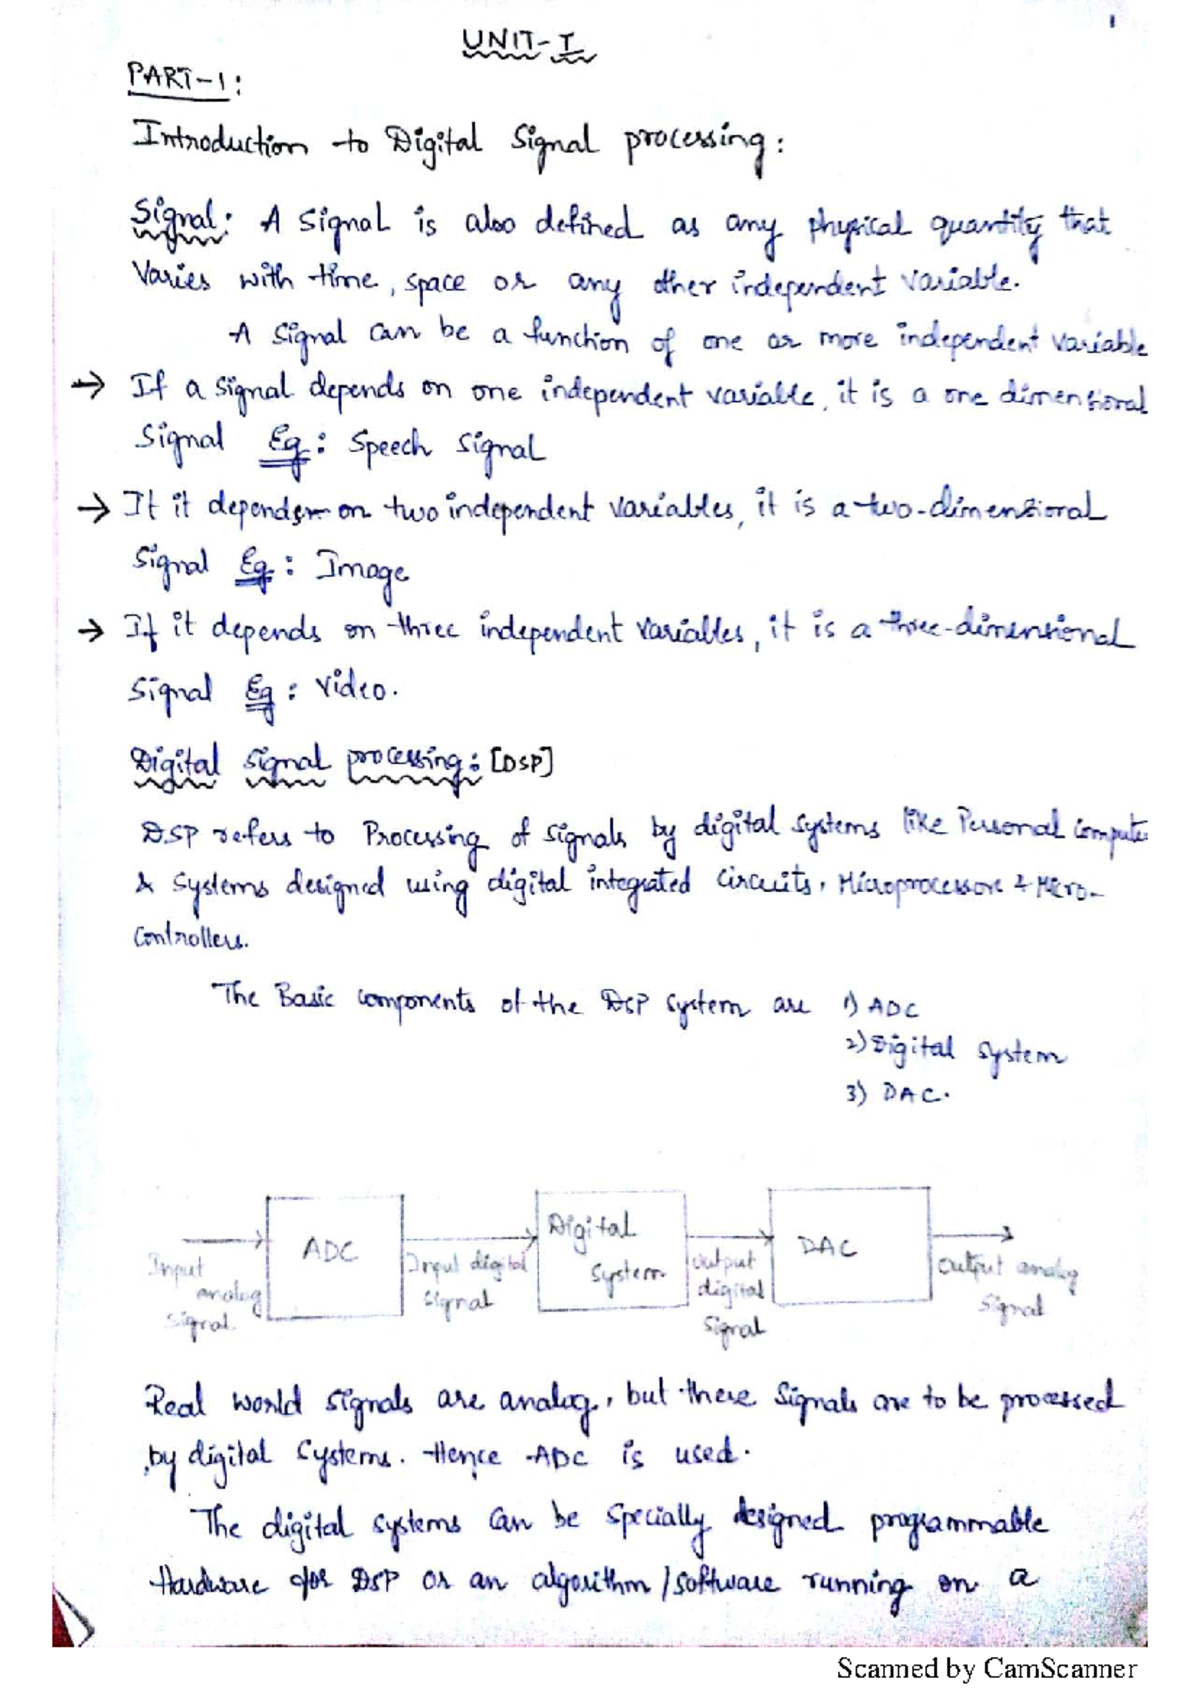 1
UNIT-I
PART-1:
Introduction to Digital Signal processing:
Signal: A Signal is also defined as any physical quantity that
Varies with time, space or any other independent variable.
A signal can be a function of one or more independent variable
→ If a signal depends on one independent variable, it is a one dimensional
Signal Eg: Speech signal
→ If it depends on two independent variables, it is a two-dimensional
Signal Eg: Image
→ If it depends on three independent variables, it is a three-dimensional
Signal Eg: Video.
Digital signal processing: [DSP]
DSP refers to Processing of signals by digital systems like Personal Compute
& systems designed using digital integrated circuits, Microprocessors & Micro-
Controllers.
The Basic components of the DSP system are 1) ADC
2) Digital system
3) DAC.
Input analog signal
ADC
Input digital signal
Digital System
output digital signal
DAC
output analog signal
Real world signals are analog, but these signals are to be processed
by digital systems. Hence ADC is used.
The digital systems can be specially designed programmable
Hardware for DSP or an algorithm/software running on a
Scanned by CamScanner